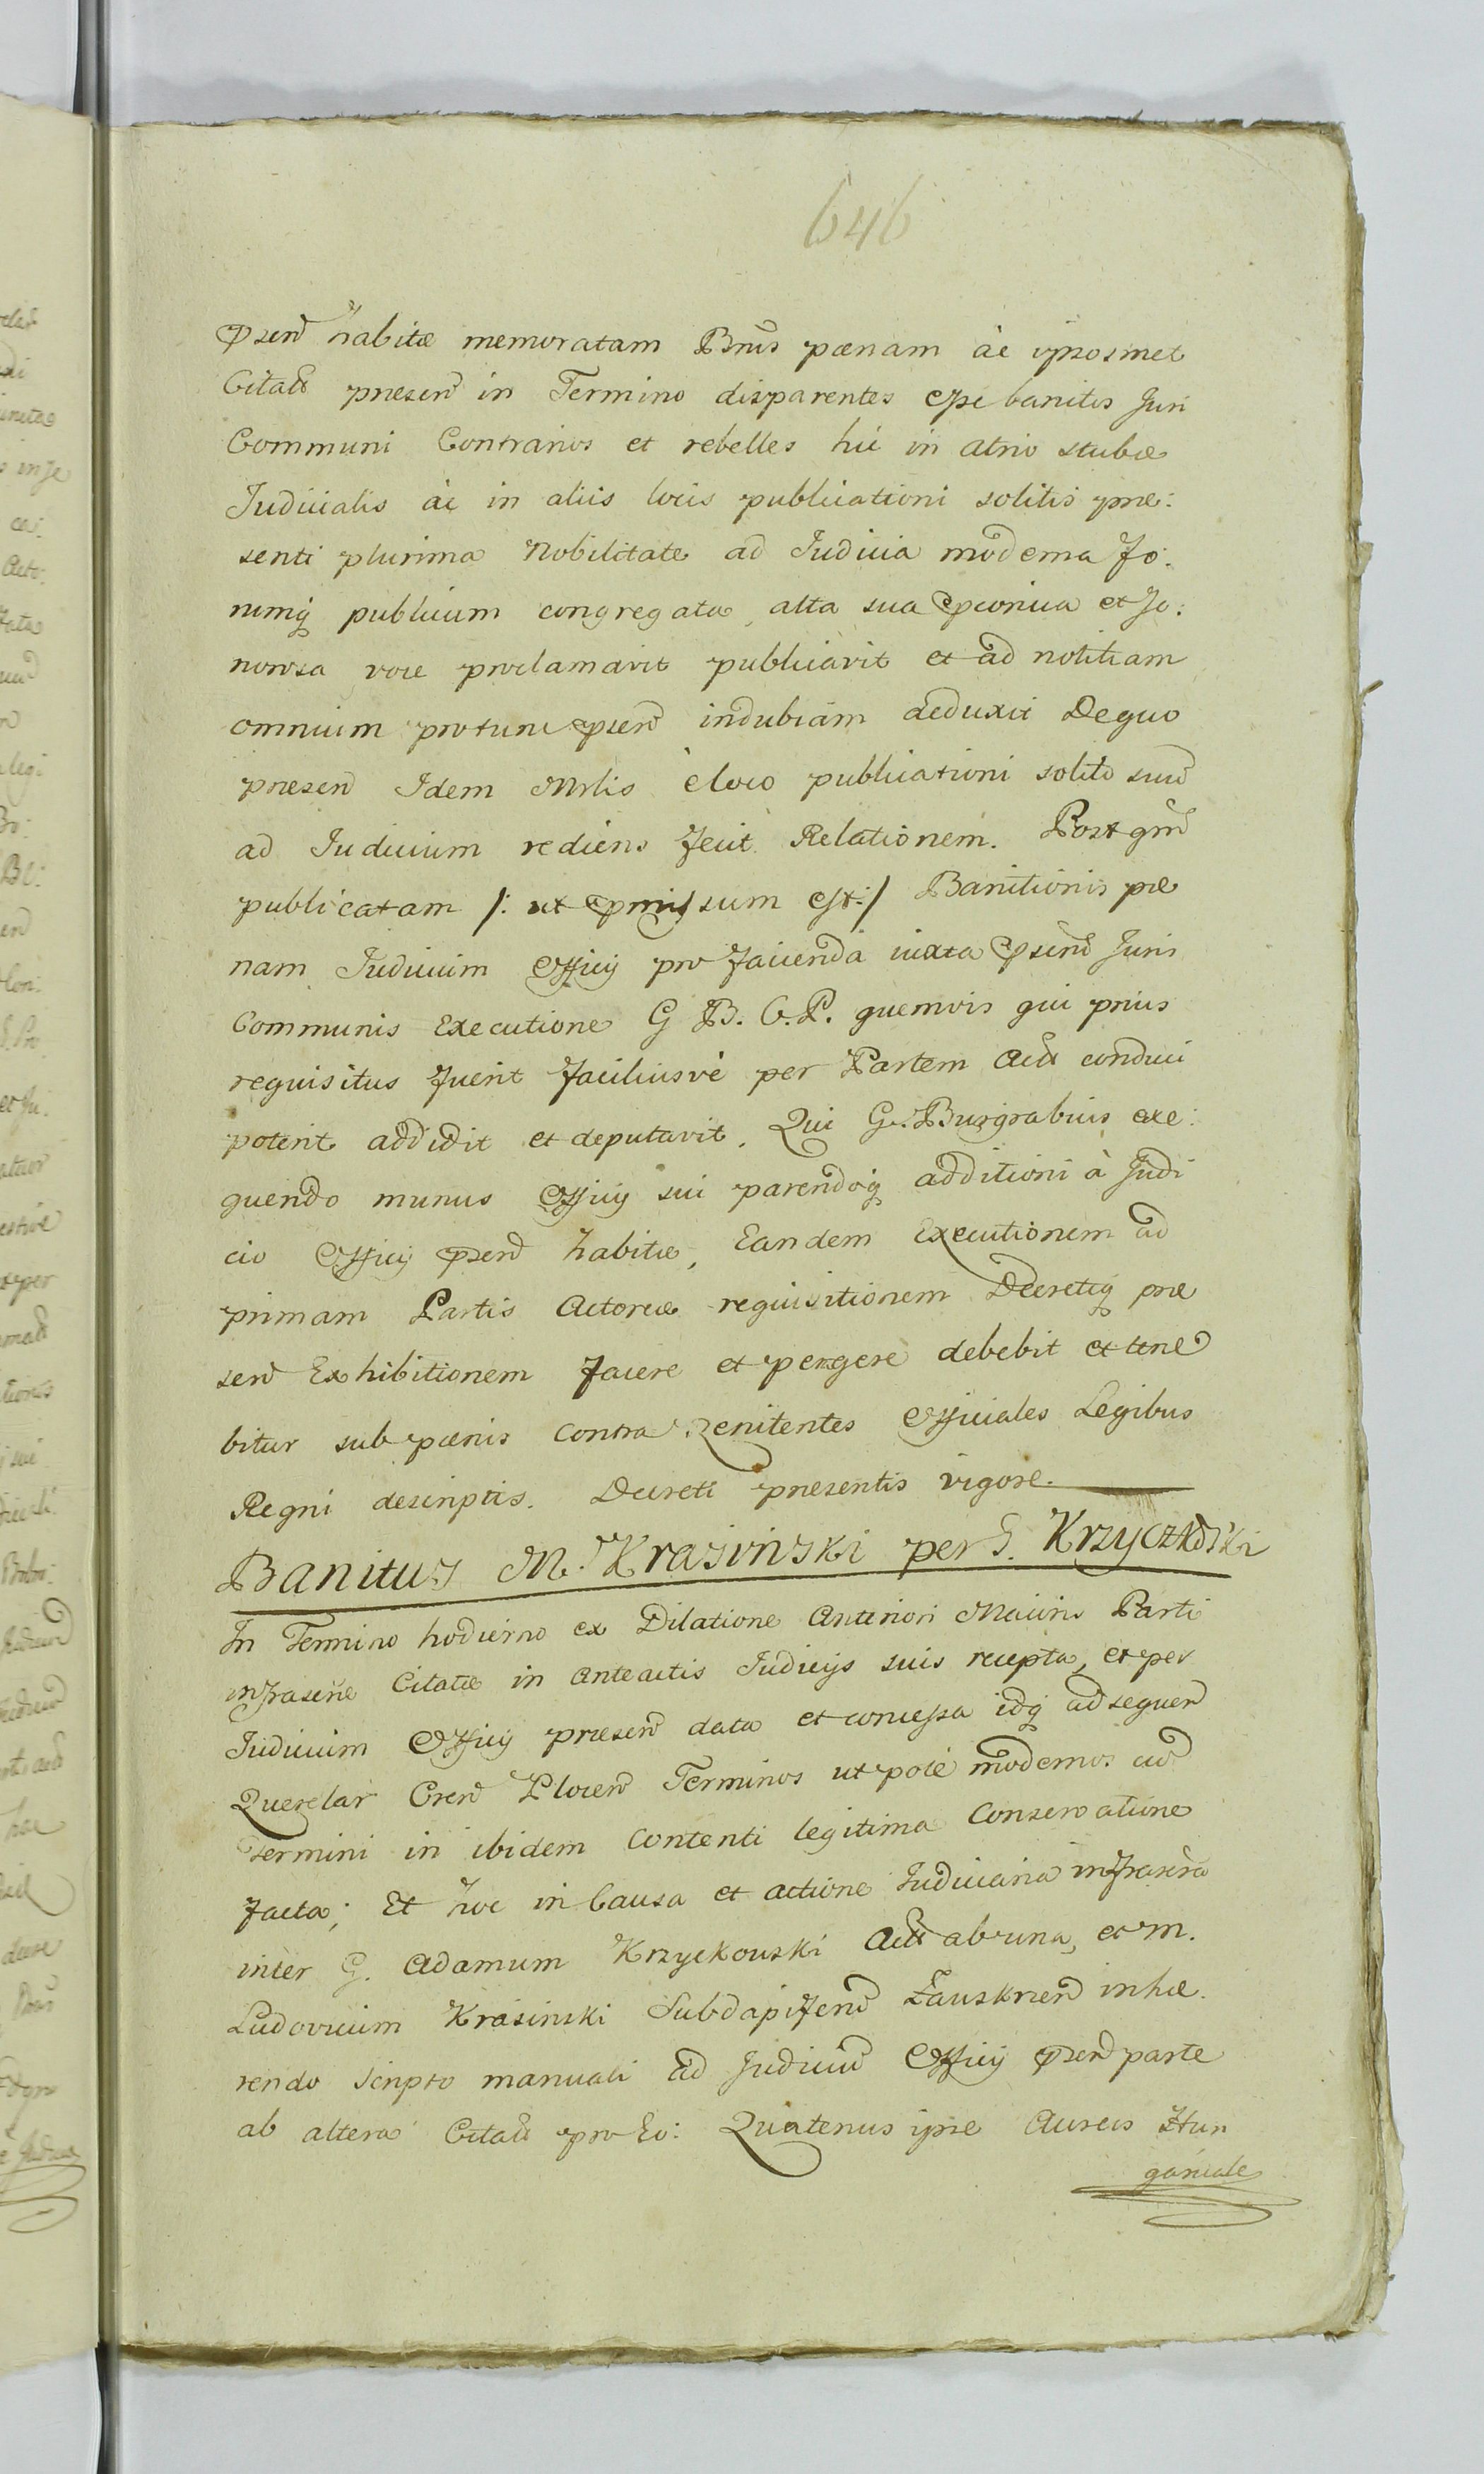 646
Psen habitæ memoratam Bnis pœnam ac ipsosmet
Citatt præsen in Termino disparentes esse banitos Juri
Communi Contrarios et rebelles hic in atrio stubæ
Judicialis ac in aliis locis publicationi solitis præ:
senti plurima Nobilitate ad Judicia moderna fo:
rumq publicum congregata, alta sua Pconica et so:
norosa voce proclamavit publicavit et ad notitiam
omnium protunc Psen indubiam deduxit De quo
præsen Idem Mrlis e loco publicationi solito suum
ad Judicium rediens fecit Relationem. Postqm
publicatam /: ut Pmissum est:/ Banitionis pæ
nam Judicium Officij pro facienda iuxta Psens Juris
Communis Executione G B. C. P. quemvis qui prius
requisitus fuerit faciliusve per Partem Actt conduci
poterit addidit et deputavit. Qui G. Burgrabius exe:
quendo munus Officij sui parendoq additioni à Judi
cio Officij Psen habitæ, Eandem Executionem ad
primam Partis Actoreæ requisitionem Decretiq præ
sen Exhibitionem facere et pergere debebit et tene
bitur sub pœnis contra Renitentes Officiales Legibus
Regni descriptis. Decreti præsentis vigore.
Banitus M. Krasinski per G. Krzyczkowski
In Termino hodierno ex Dilatione Anteriori Maioris Parti
infrascrie Citatæ in anteactis Judicijs suis recepta, et per
Judicium Officij præsen data et concessa idq ad sequen
Querelar Cren Plocen Terminos utpote modernos ad
termini in ibidem Contenti legitima Conservatione
facta; Et hoc in Causa et actione Judiciaria infrascra
inter G. Adamum Krzyckowski Actt ab una, et M.
Ludovicum Krasinski Subdapiferum Zauskrzen inhæ.
rendo scripto manuali ad Judicium Officij Psen parte
ab altera Citatt pro Eo: Quatenus ipse Aureos Hun
garicale